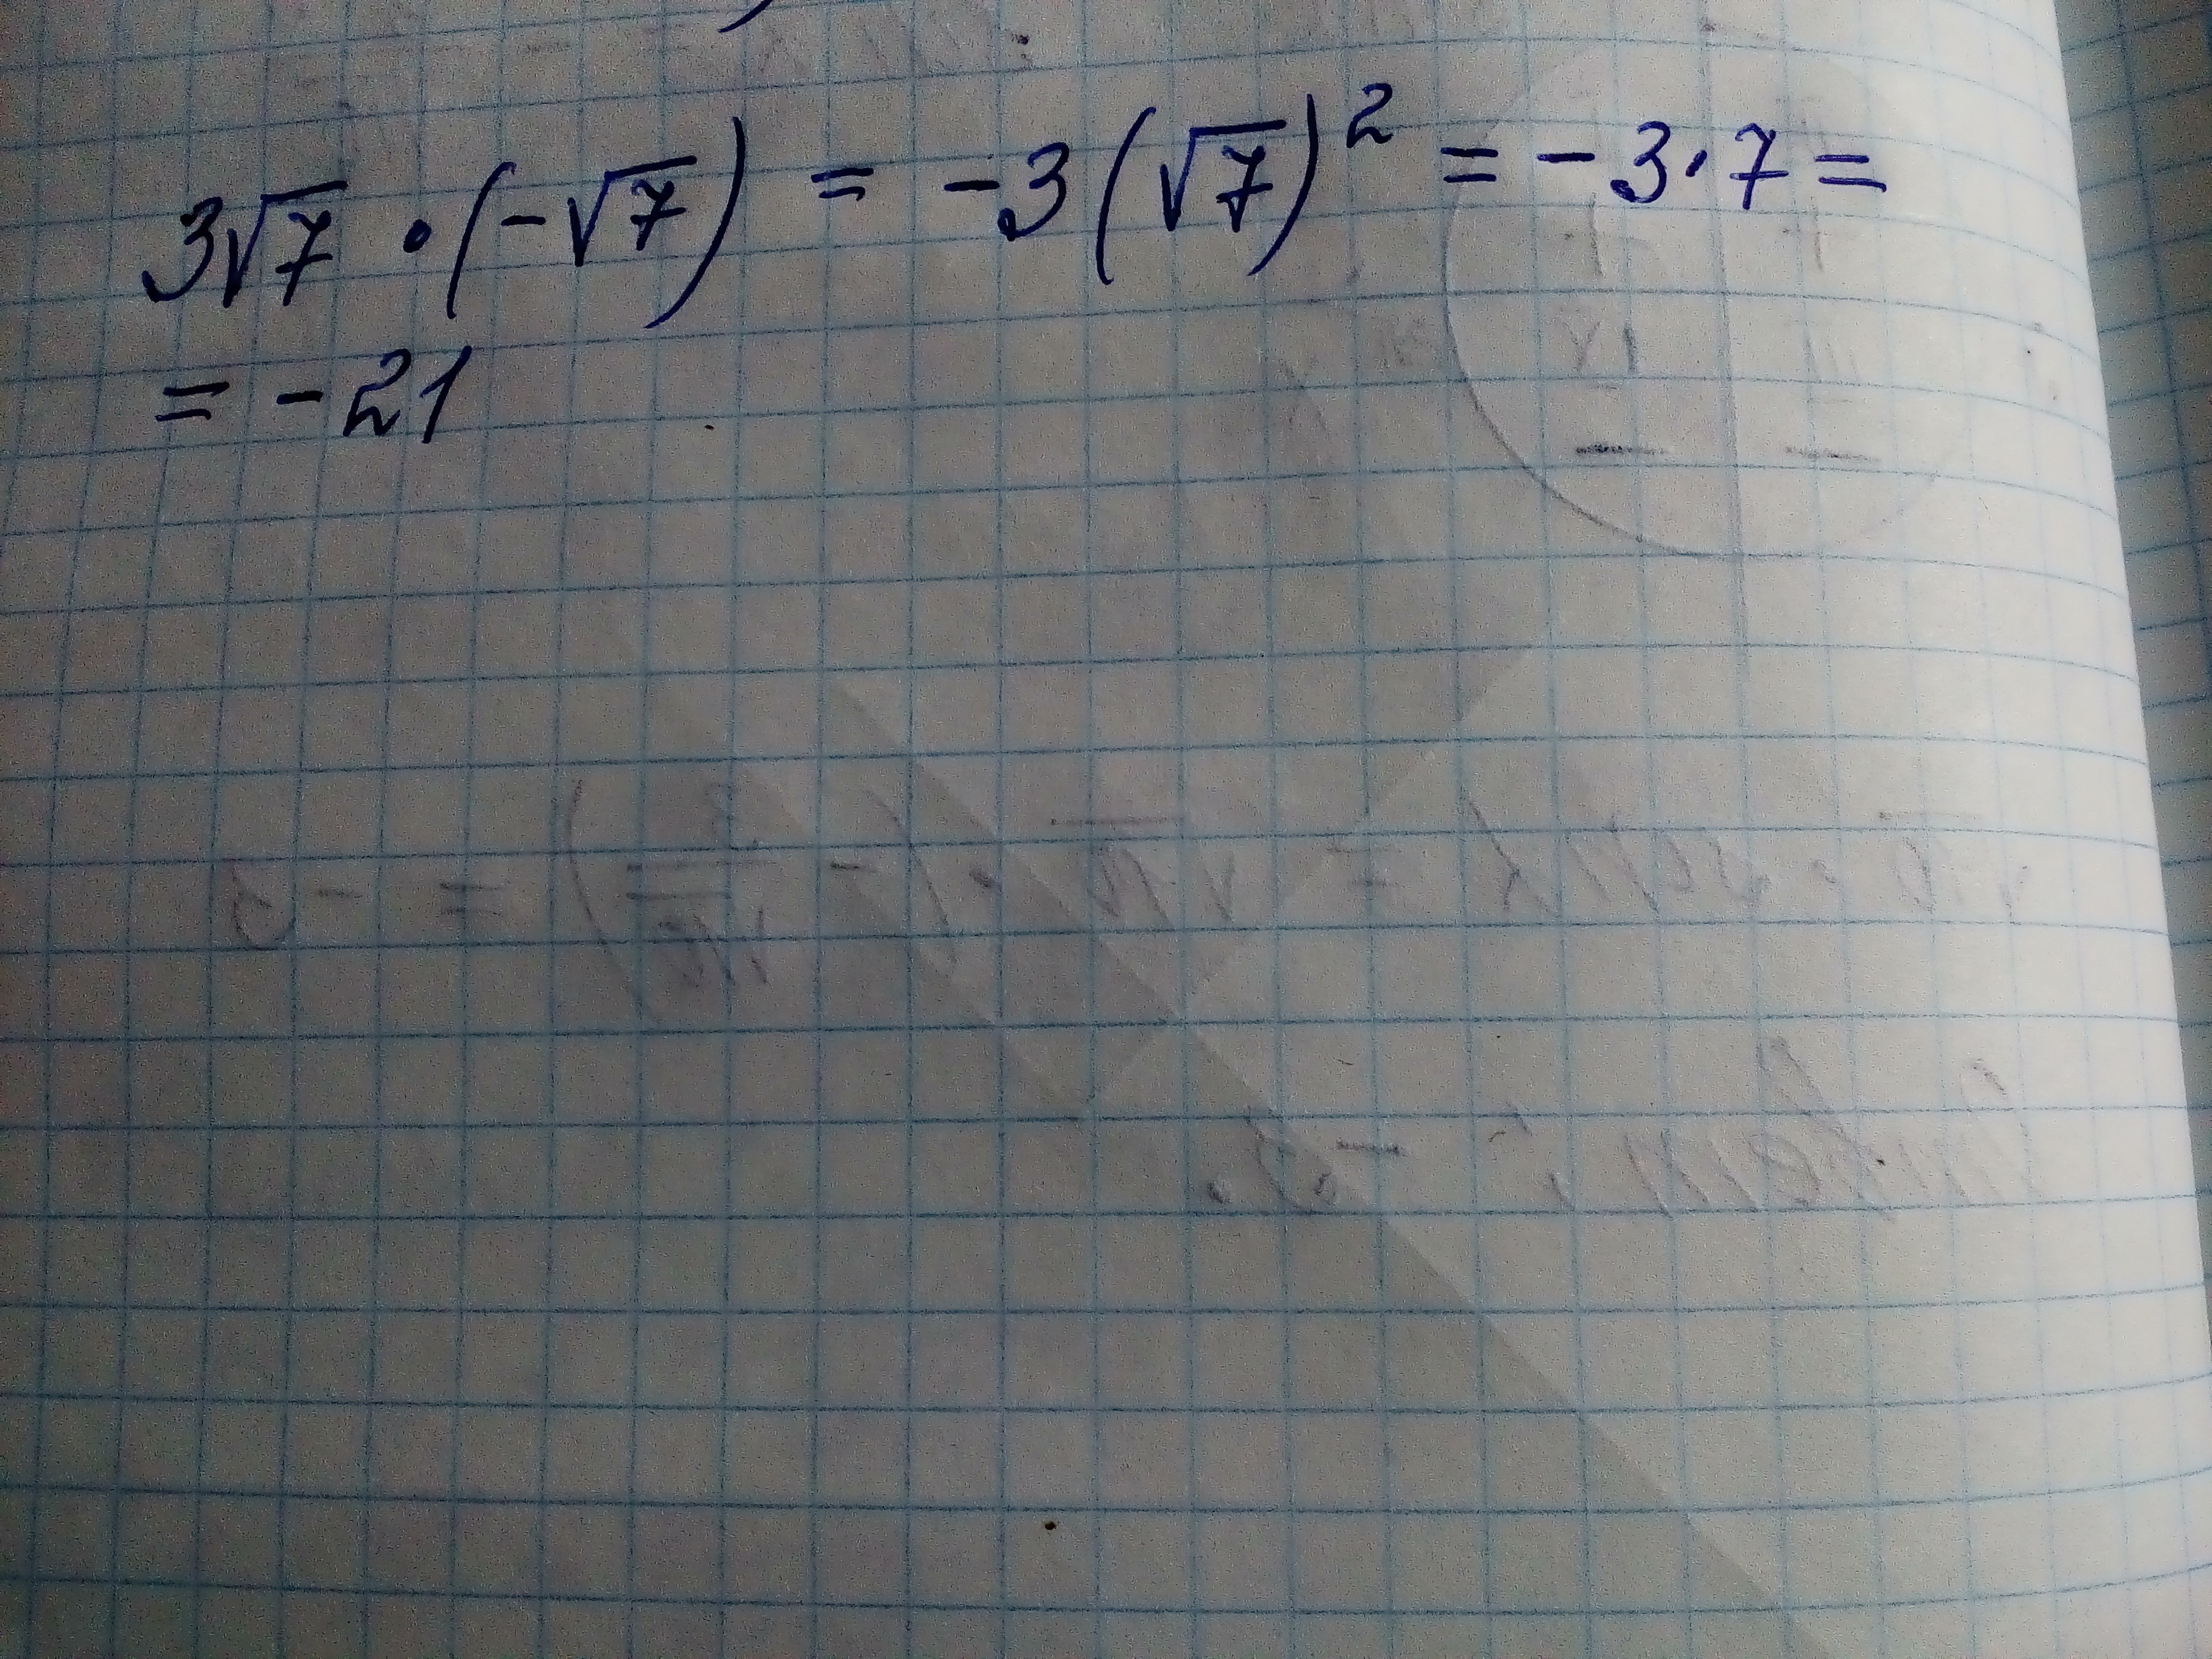 3√7 · (-√7) = -3(√7)² = -3·7 =
= -21